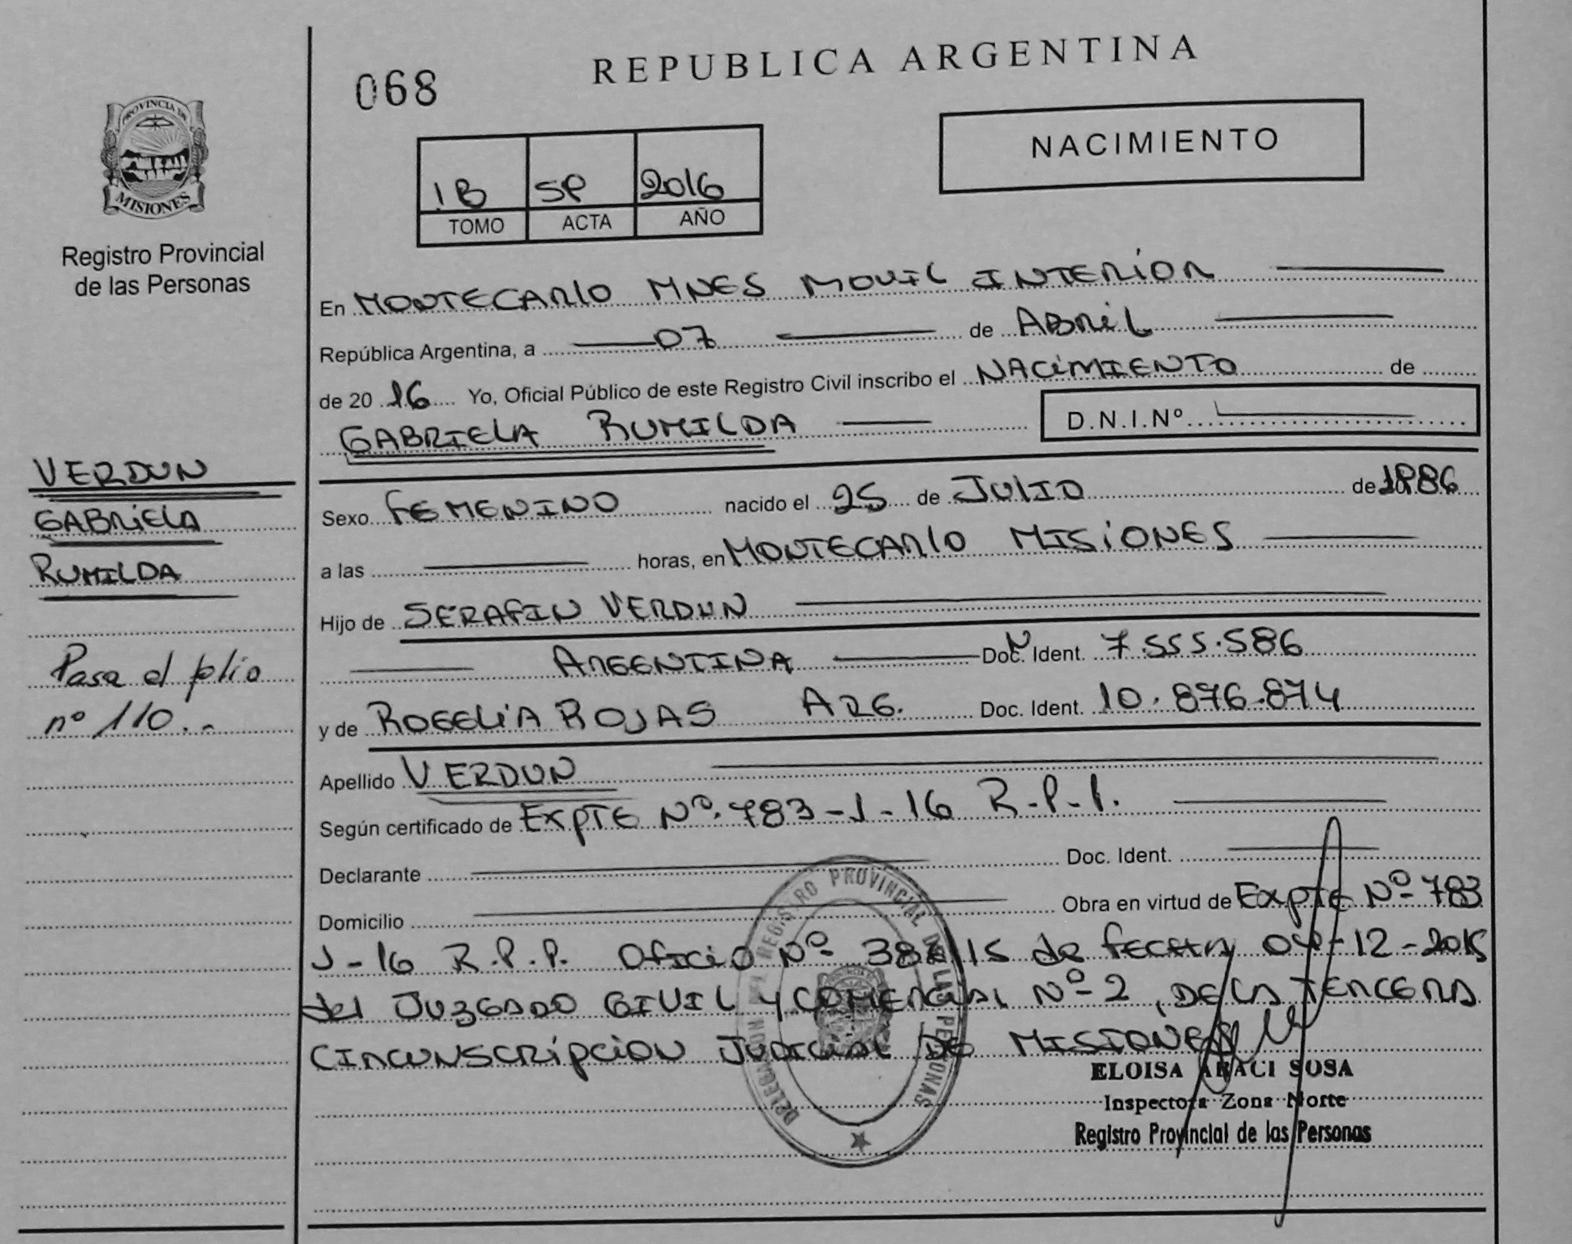 068
REPUBLICA ARGENTINA
NACIMIENTO
1B SP 2016
TOMO ACTA AÑO
PROVINCIA DE
MISIONES
Registro Provincial
de las Personas
En MONTECARLO MNES MOVIL INTERIOR
República Argentina, a 07 de ABRIL
de 20 16 Yo, Oficial Público de este Registro Civil inscribo el NACIMIENTO de
GABRIELA RUMILDA D.N.I.Nº
VERDUN
GABRIELA
RUMILDA
Pasa al folio
nº 110..
Sexo FEMENINO nacido el 25 de JULIO de 1986
a las horas, en MONTECARLO MISIONES
Hijo de SERAFIN VERDUN
ARGENTINA Doc. Ident. 7.555.586
y de ROGELIA ROJAS ARG. Doc. Ident. 10.876.874
Apellido VERDUN
Según certificado de EXPTE Nº.783-J-16 R.P.P.
Declarante Doc. Ident.
Domicilio Obra en virtud de EXPTE Nº 783
J-16 R.P.P. OFICIO Nº 15 de FECHA 04-12-2015
del JUZGADO CIVIL Y COMERCIAL Nº 2, DE LA TERCERA
CIRCUNSCRIPCION JUDICIAL DE MISIONES
DELEGACION DEL REGISTRO PROVINCIAL DE LAS PERSONAS
ELOISA ARACI SOSA
Inspectora Zona Norte
Registro Provincial de las Personas